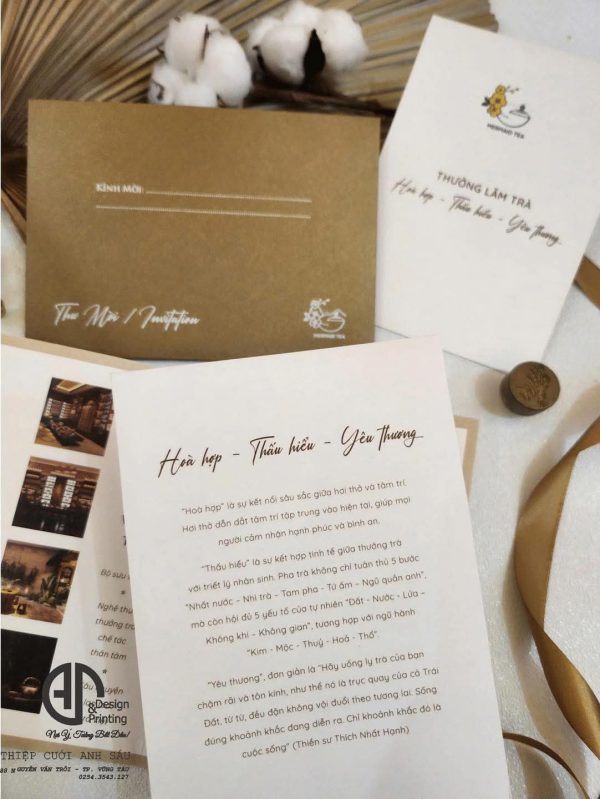 MERMAID TEA
THƯỞNG LÃM TRÀ
Hoà hợp - Thấu hiểu - Yêu thương
KÍNH MỜI:
Thư Mời / Invitation
MERMAID TEA
Hoà hợp - Thấu hiểu - Yêu thương
"Hoà hợp" là sự kết nối sâu sắc giữa hơi thở và tâm trí.
Hơi thở dẫn dắt tâm trí tập trung vào hiện tại, giúp mọi
người cảm nhận hạnh phúc và bình an.
"Thấu hiểu" là sự kết hợp tinh tế giữa thưởng trà
với triết lý nhân sinh. Pha trà không chỉ tuân thủ 5 bước
"Nhất nước - Nhì trà - Tam pha - Tứ ấm - Ngũ quần anh",
mà còn hội đủ 5 yếu tố của tự nhiên "Đất - Nước - Lửa -
Không khí - Không gian", tương hợp với ngũ hành
"Kim - Mộc - Thuỷ - Hoả - Thổ".
"Yêu thương", đơn giản là "Hãy uống ly trà của bạn
chậm rãi và tôn kính, như thể nó là trục quay của cả Trái
Đất, từ từ, đều đặn không vội đuổi theo tương lai. Sống
đúng khoảnh khắc đang diễn ra. Chỉ khoảnh khắc đó là
cuộc sống" (Thiền sư Thích Nhất Hạnh)
Bộ sưu
*
Nghệ thu
thưởng tr
chế tác
thân tâm
*
&Design
Printing
Nơi Ý Tưởng Bắt Đầu!
THIỆP CƯỚI ANH SÁU
88 NGUYỄN VĂN TRỖI - TP. VŨNG TÀU
0254.3543.127